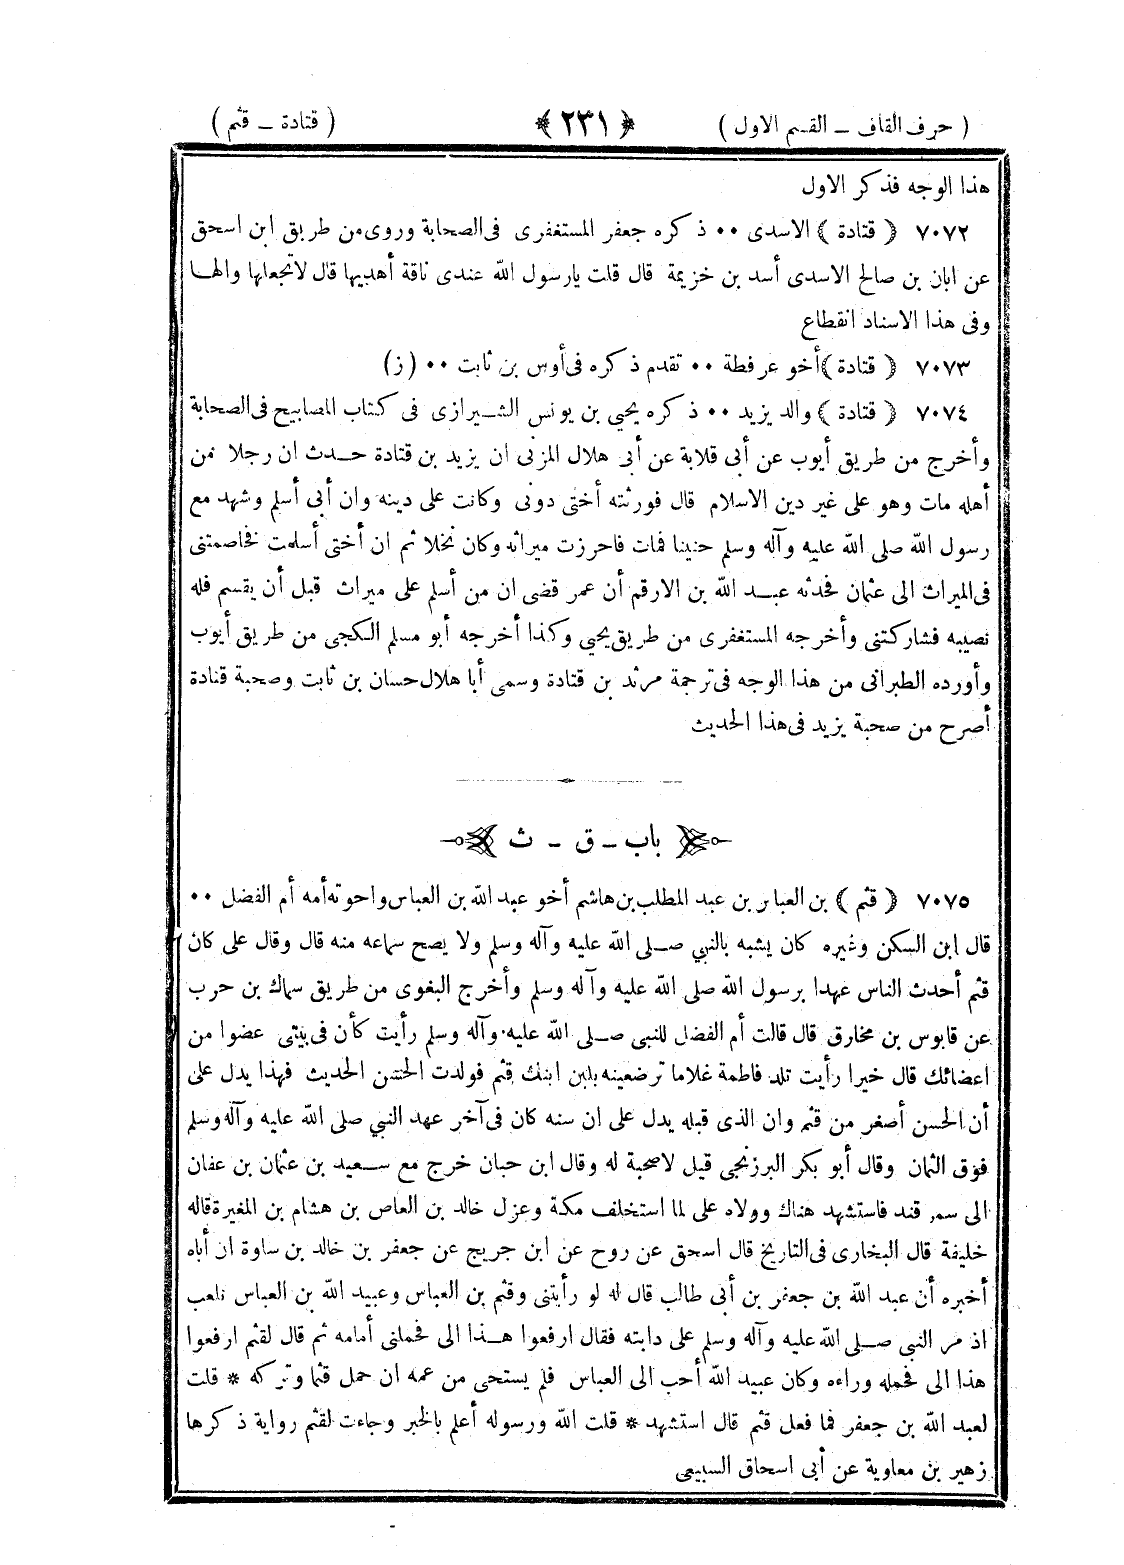 ( حرف القاف ــ القسم الاول ) ﴿ ٢٣١ ﴾ ( قتادة ــ قثم )
هذا الوجه فذكر الاول
٧٠٧٢ ﴿ قتادة ﴾ الاسدى ٠٠ ذكره جعفر المستغفرى فى الصحابة وروى من طريق ابن اسحق
عن ابان بن صالح الاسدى أسد بن خزيمة قال قلت يارسول الله عندى ناقة أهديها قال لاتجعلها والها
وفى هذا الاسناد انقطاع
٧٠٧٣ ﴿ قتادة ﴾ أخو عرفطة ٠٠ تقدم ذكره فى أوس بن ثابت ٠٠ (ز)
٧٠٧٤ ﴿ قتادة ﴾ والد يزيد ٠٠ ذكره يحيى بن يونس الشيرازى فى كتاب المصابيح فى الصحابة
وأخرج من طريق أيوب عن أبى قلابة عن أبى هلال المزنى ان يزيد بن قتادة حدث ان رجلا من
أهله مات وهو على غير دين الاسلام قال فورثته أختى دونى وكانت على دينه وان أبى أسلم وشهد مع
رسول الله صلى الله عليه وآله وسلم حنينا فمات فاحرزت ميراثه وكان نخلا ثم ان أختى أسلمت فخاصمتنى
فى الميراث الى عثمان فحدثه عبد الله بن الارقم أن عمر قضى ان من أسلم على ميراث قبل أن يقسم فله
نصيبه فشاركتنى وأخرجه المستغفرى من طريق يحيى وكذا أخرجه أبو مسلم الكجى من طريق أيوب
وأورده الطبرانى من هذا الوجه فى ترجمة مرثد بن قتادة وسمى أبا هلال حسان بن ثابت وصحبة قتادة
أصرح من صحبة يزيد فى هذا الحديث
باب ــ ق ــ ث
٧٠٧٥ ﴿ قثم ﴾ بن العباس بن عبد المطلب بن هاشم أخو عبد الله بن العباس واخوته أمه أم الفضل ٠٠
قال ابن السكن وغيره كان يشبه بالنبي صلى الله عليه وآله وسلم ولا يصح سماعه منه قال وقال على كان
قثم أحدث الناس عهدا برسول الله صلى الله عليه وآله وسلم وأخرج البغوى من طريق سماك بن حرب
عن قابوس بن مخارق قال قالت أم الفضل للنبي صلى الله عليه وآله وسلم رأيت كأن فى بيتى عضوا من
اعضائك قال خيرا رأيت تلد فاطمة غلاما ترضعينه بلبن ابنك قثم فولدت الحسن الحديث فهذا يدل على
أن الحسن أصغر من قثم وان الذى قبله يدل على ان سنه كان فى آخر عهد النبي صلى الله عليه وآله وسلم
فوق الثمان وقال أبو بكر البرزنجى قيل لاصحبة له وقال ابن حبان خرج مع سعيد بن عثمان بن عفان
الى سمرقند فاستشهد هناك وولاه على لما استخلف مكة وعزل خالد بن العاص بن هشام بن المغيرة قاله
خليفة قال البخارى فى التاريخ قال اسحق عن روح عن ابن جريج عن جعفر بن خالد بن ساوة ان أباه
أخبره أن عبد الله بن جعفر بن أبى طالب قال له لو رأيتنى وقثم بن العباس وعبيد الله بن العباس نلعب
اذ مر النبي صلى الله عليه وآله وسلم على دابته فقال ارفعوا هذا الى فحملنى أمامه ثم قال لقثم ارفعوا
هذا الى فحمله وراءه وكان عبيد الله أحب الى العباس فلم يستحى من عمه ان حمل قثما وتركه * قلت
لعبد الله بن جعفر فما فعل قثم قال استشهد * قلت الله ورسوله أعلم بالخبر وجاءت لقثم رواية ذكرها
زهير بن معاوية عن أبى اسحاق السبيعى